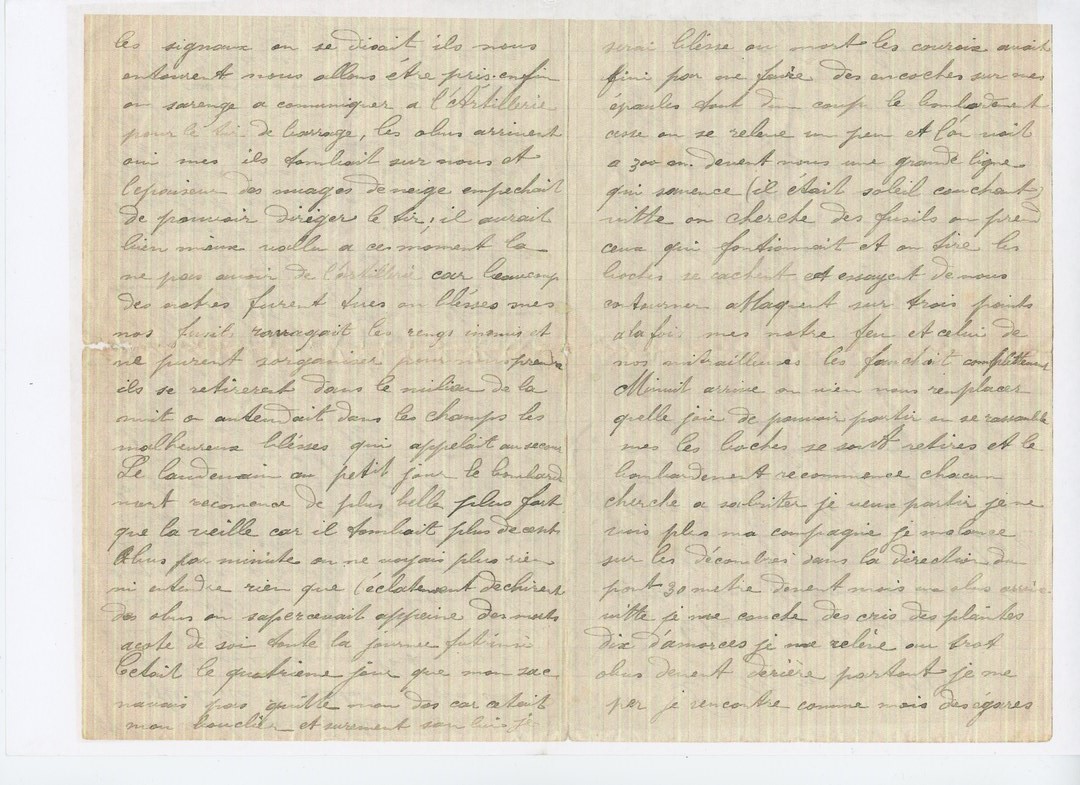 les signaux on se disait ils nous
entourent nous allons être pris. enfin
on sarenge a comuniquer a l'Artillerie
pour le tir de barrage, les obus arrivent
oui mes ils tombait sur nous et
l'epaiseur des nuages de neige empechait
de pouvoir diriger le tir, il aurait
bien mieux vallu a ce moment la
ne pas avoir de l'artillerie car beaucoup
des notres furent tues ou blésses mes
nos fusils ravagait les rengs inemis et
ne purent sorganiser pour nous prendre
ils se retirerent dans le milieu de la
nuit on entendait dans les champs les
malheureux blésses qui appelait au secour
Le lendemain au petit jour le bombard
ment recomence de plus belle plus fort
que la veille car il tombait plus de cent
obus par minute on ne voyais plus rien
ni entendre rien que l'éclatement dechirent
des obus on sapercevait appeine des morts
acote de soi toute la journee fut insi
C'etait le quatrieme jour que mon sac
navais pas quitte mon dos car cetait
mon bouclier et surement sen luis je
serai blésse ou mort les couroix avait
fini par me faire des encoches sur mes
épaules tout dun coup le bombardement
cesse on se releve un peu et l'on voit
a 300 m. devent nous une grande ligne
qui savence (il était soleil couchant)
vitte on cherche des fusils on pren
ceux qui fontionnait et on tire les
boches se cachent et essayent de nous
contourner attaquent sur trois points
ala fois mes notre feu et celui de
nos mitrailleuses les fauchait complettement
Minuit arrive on vien nous remplacer
quelle joie de pouvoir partir on se rassemble
mes les boches se sont retires et le
bombardement recommence chacun
cherche a sabriter je veux partir je ne
vois plus ma compagnie je melance
sur les décombres dans la direction du
pont 30 metre devent mois un obus arrive
vitte je me couche des cris des plaintes
Dix d'amorces je me relève au trot
obus devent derière partout je me
per je rencontre comme mois des égares